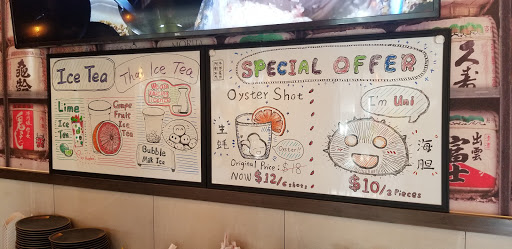 Ice Tea
Thai Ice Tea
Lime
Ice
Tea
Grape
Fruit
Ice
Tea
Bubble
Milk Ice
SPECIAL OFFER
Oyster Shot
生
蚝
Original Price: $18
NOW $12/6 shots
I'm Uni
海
胆
$10/2 Pieces
久
寿
出雲
富士